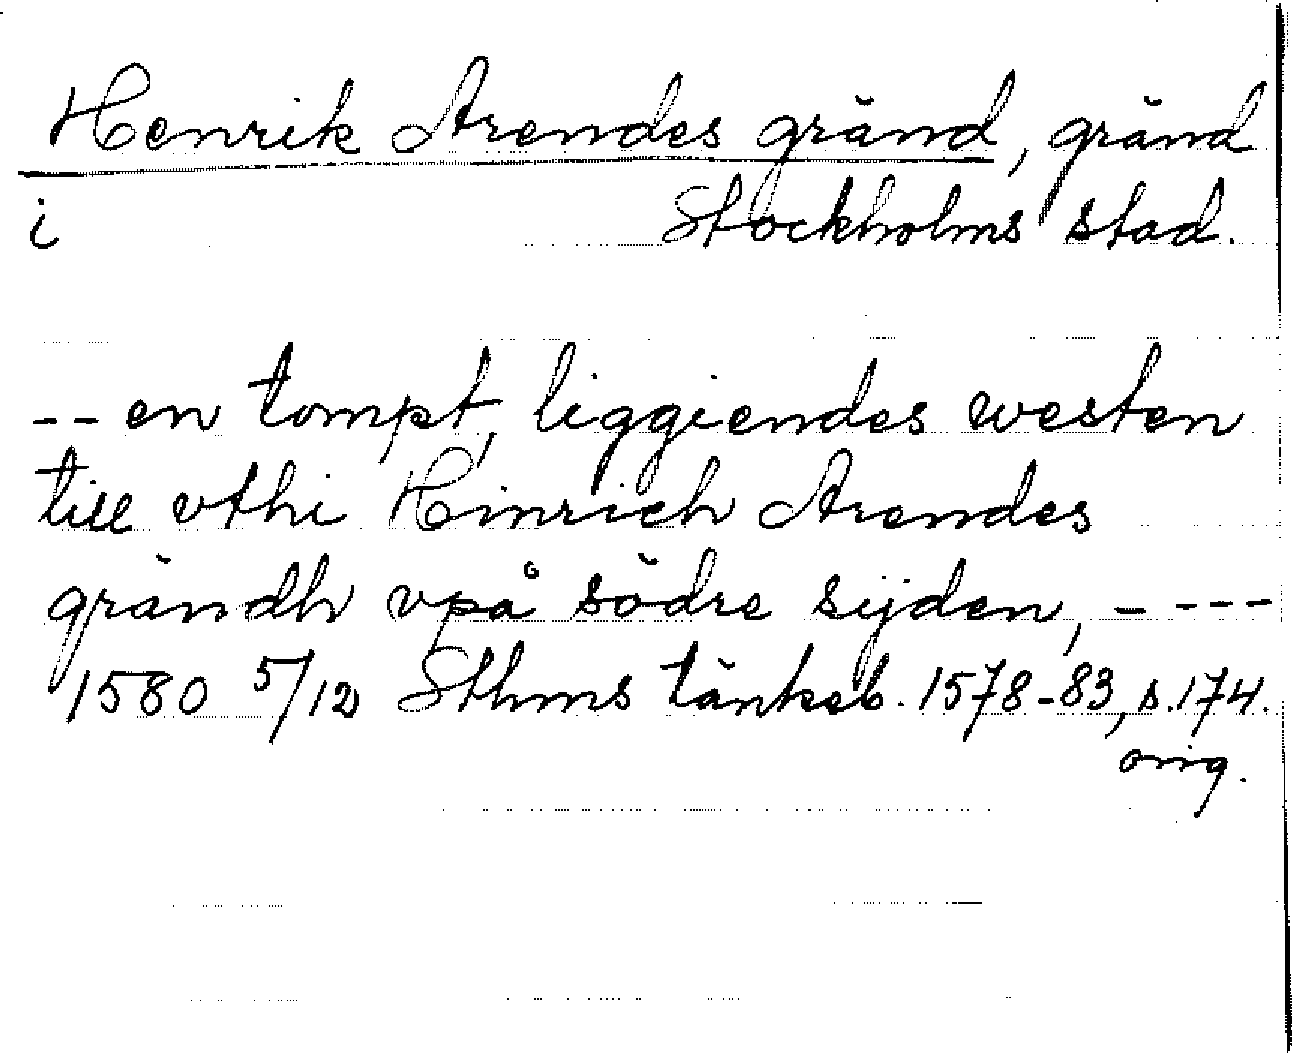 Henrik Arendes gränd, gränd
i Stockholms stad.
-- en tompt, liggiendes westen
till vthi Hinrich Arendes
grändh vpå södre sijden, ----
1580 5/12 Sthms tänkeb. 1578-83, s. 174.
orig.